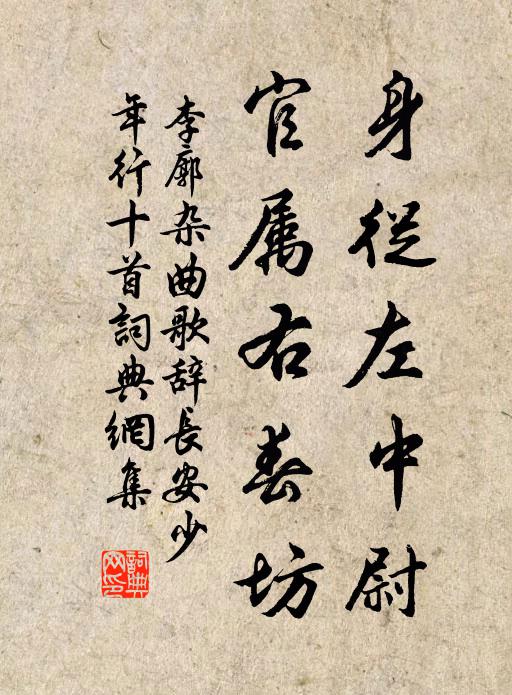 身從左中尉
官属右春坊
李廓杂曲歌辞長安少
年行十首詞典網集
詞典
网印